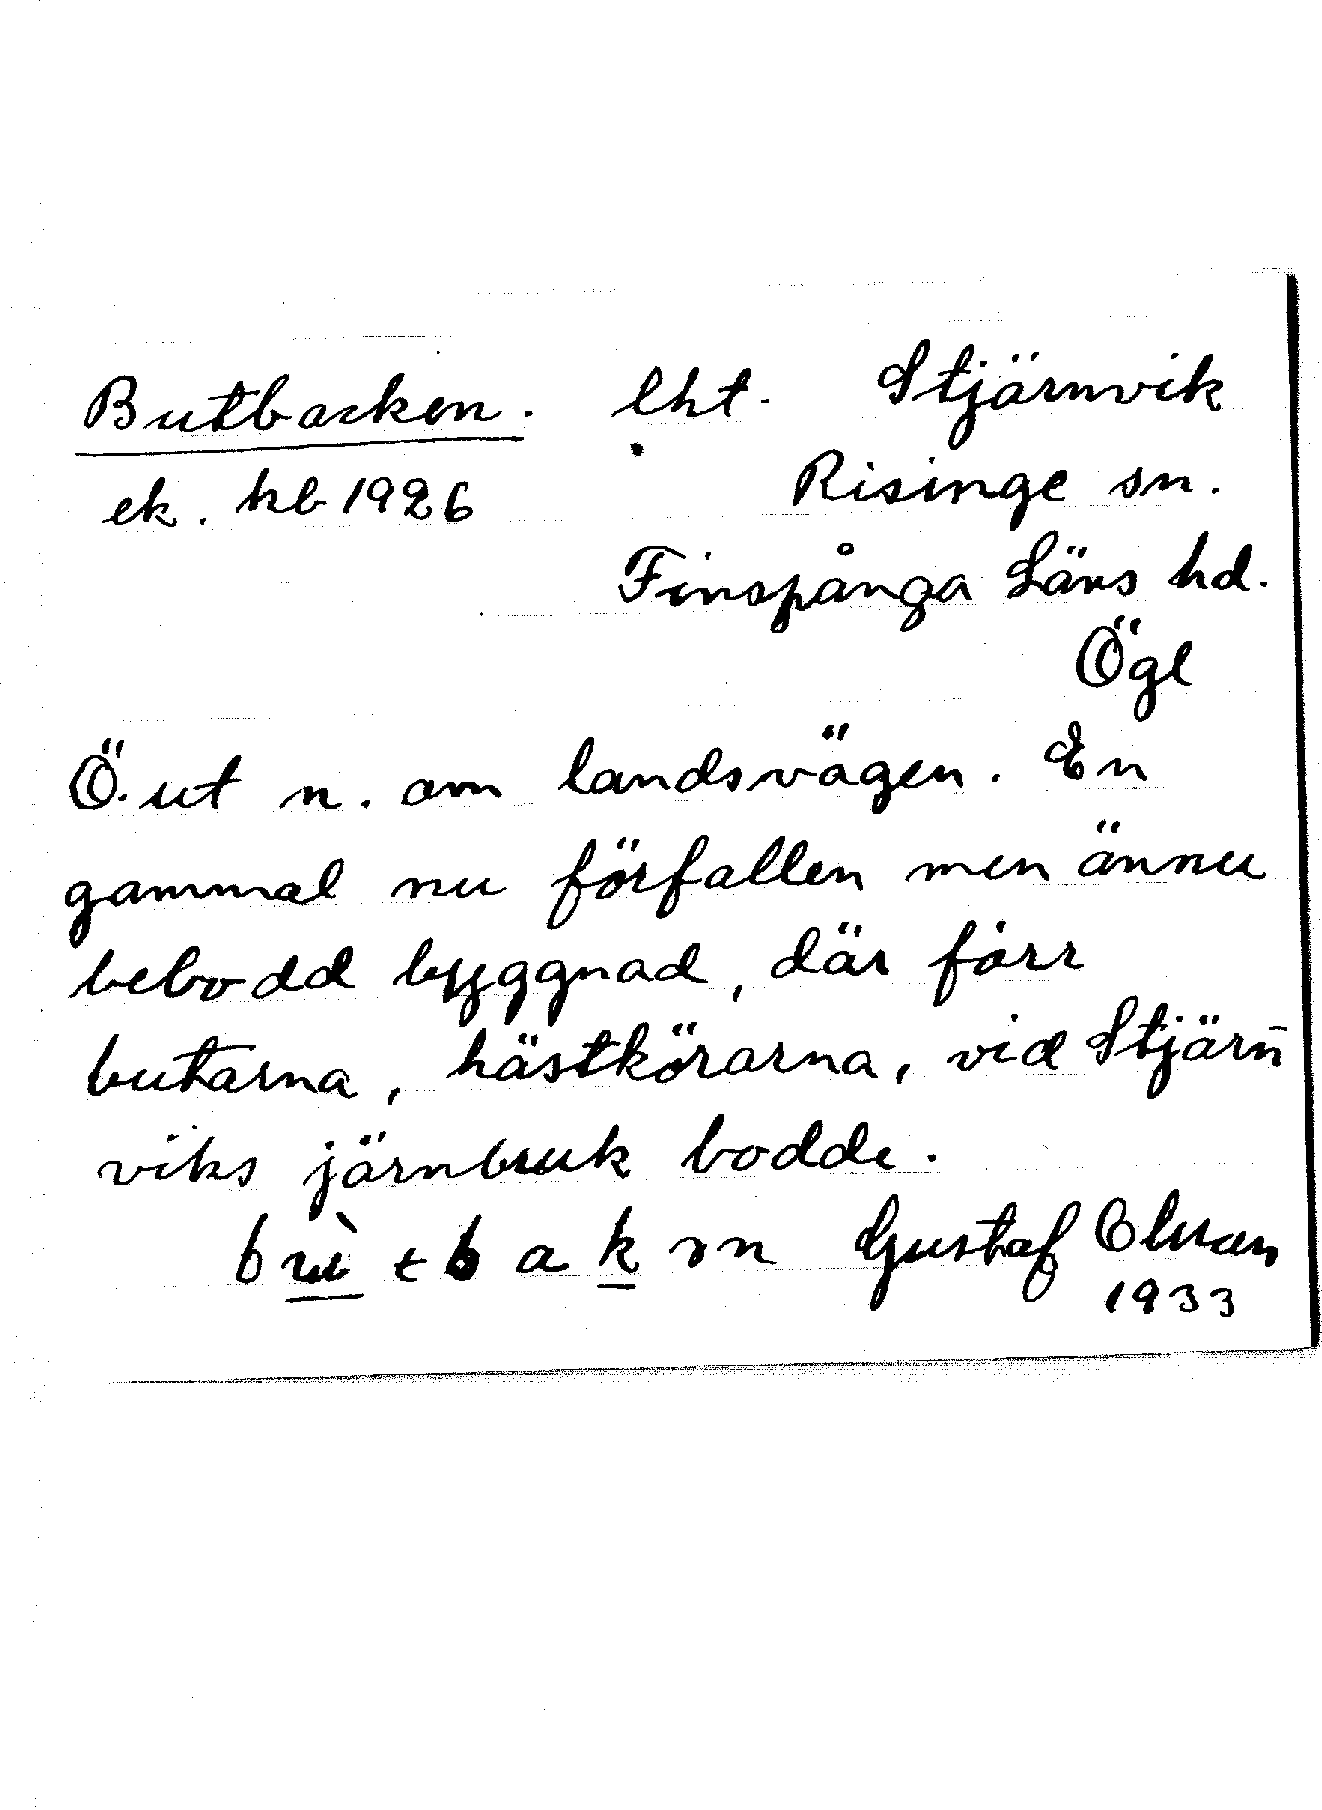 Butbacken. lht. Stjärnvik
ek. kb 1926 Risinge sn.
Finspånga Läns hd.
Ögl
Ö. ut n. om landsvägen. En
gammal nu förfallen men ännu
bebodd byggnad, där förr
butarna, hästkörarna, vid Stjärn-
viks järnbruk bodde.
Gustaf
1933